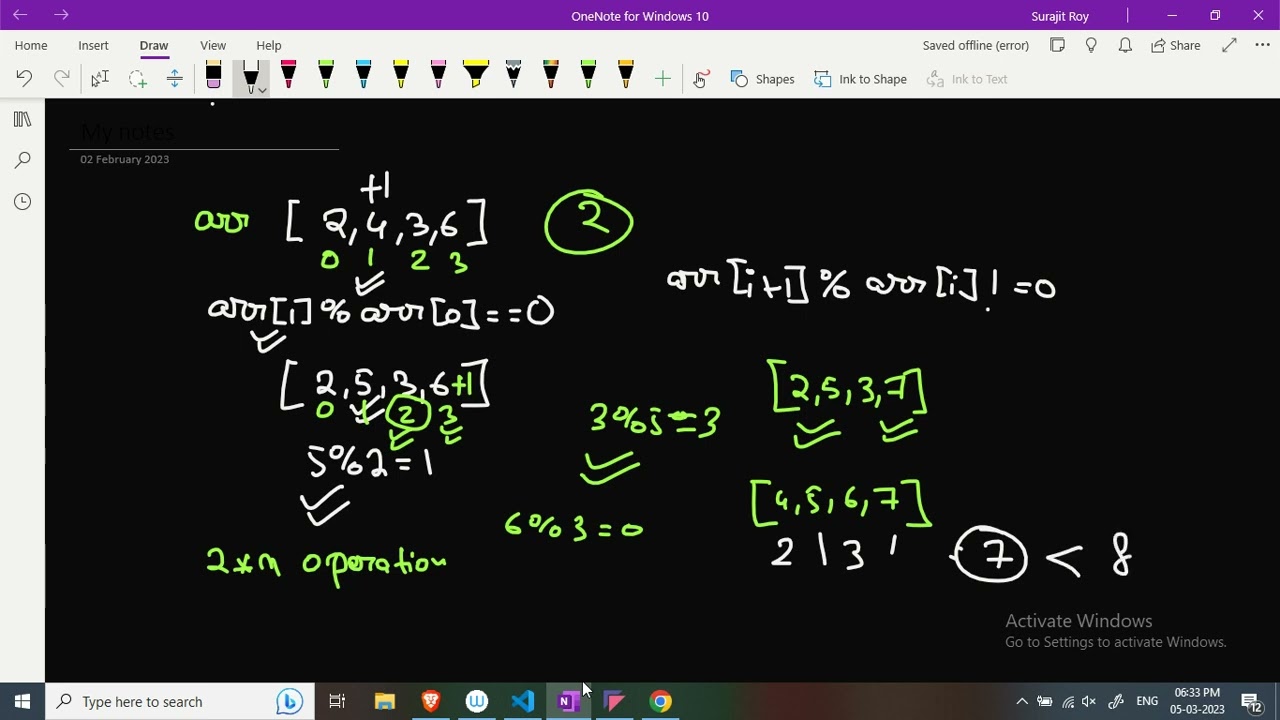 OneNote for Windows 10
Surajit Roy
Home Insert Draw View Help
Saved offline (error)
Share
Shapes
Ink to Shape
Ink to Text
My notes
02 February 2023
+1
arr [ 2, 4, 3, 6 ]
0 1 2 3
2
arr[1] % arr[0] == 0
arr[i+1] % arr[i] != 0
[ 2, 5, 3, 6+1 ]
0 1 2 3
3%5 = 3
[2, 5, 3, 7]
5%2 = 1
[4, 5, 6, 7]
6%3 = 0
2 1 3 1
7 < 8
2*n operation
Activate Windows
Go to Settings to activate Windows.
Type here to search
ENG
06:33 PM
05-03-2023
12